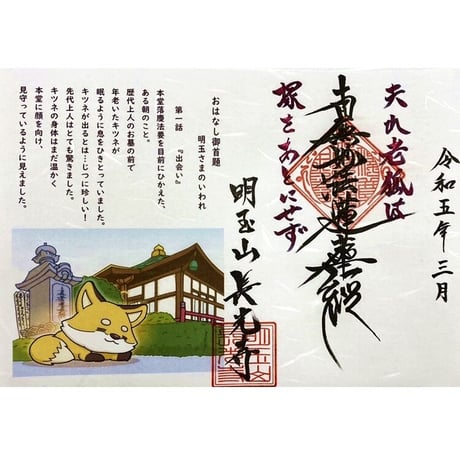 令和五年三月
夫れ老狐は
南無妙法蓮華経
塚をあとにせず
明玉山 長光寺
おはなし御首題
明玉さまのいわれ
第一話 『出会い』
本堂落慶法要を目前にひかえた、
ある朝のこと。
歴代上人のお墓の前で
年老いたキツネが
眠るように息をひきとっていました。
キツネが出るとは…じつに珍しい！
先代上人はとても驚きました。
キツネの身体はまだ温かく
本堂に顔を向け、
見守っているように見えました。